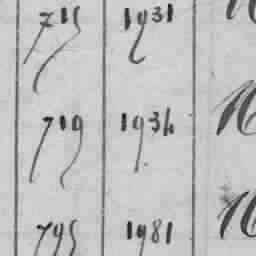 715 1931
719 1934
795 1981